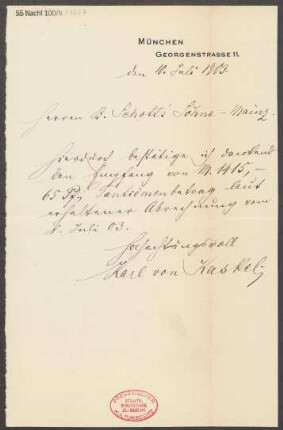 55 Nachl 100/B
MÜNCHEN
GEORGENSTRASSE 11.
den 10. Juli 1903.
Herren B. Schott's Söhne - Mainz.
Hierdurch bestätige ich dankend
den Empfang von M. 1415,-
65 Pf. Tantièmenbetrag laut
erhaltener Abrechnung vom
8. Juli 03.
Hochachtungsvoll
Karl von Kaskel
STAATS-
BIBLIOTHEK
ZU BERLIN